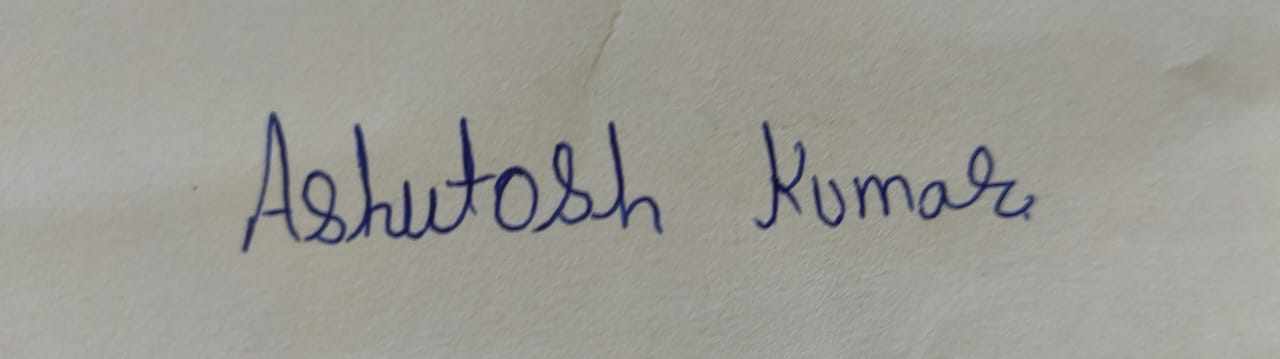 Ashutosh Kumar